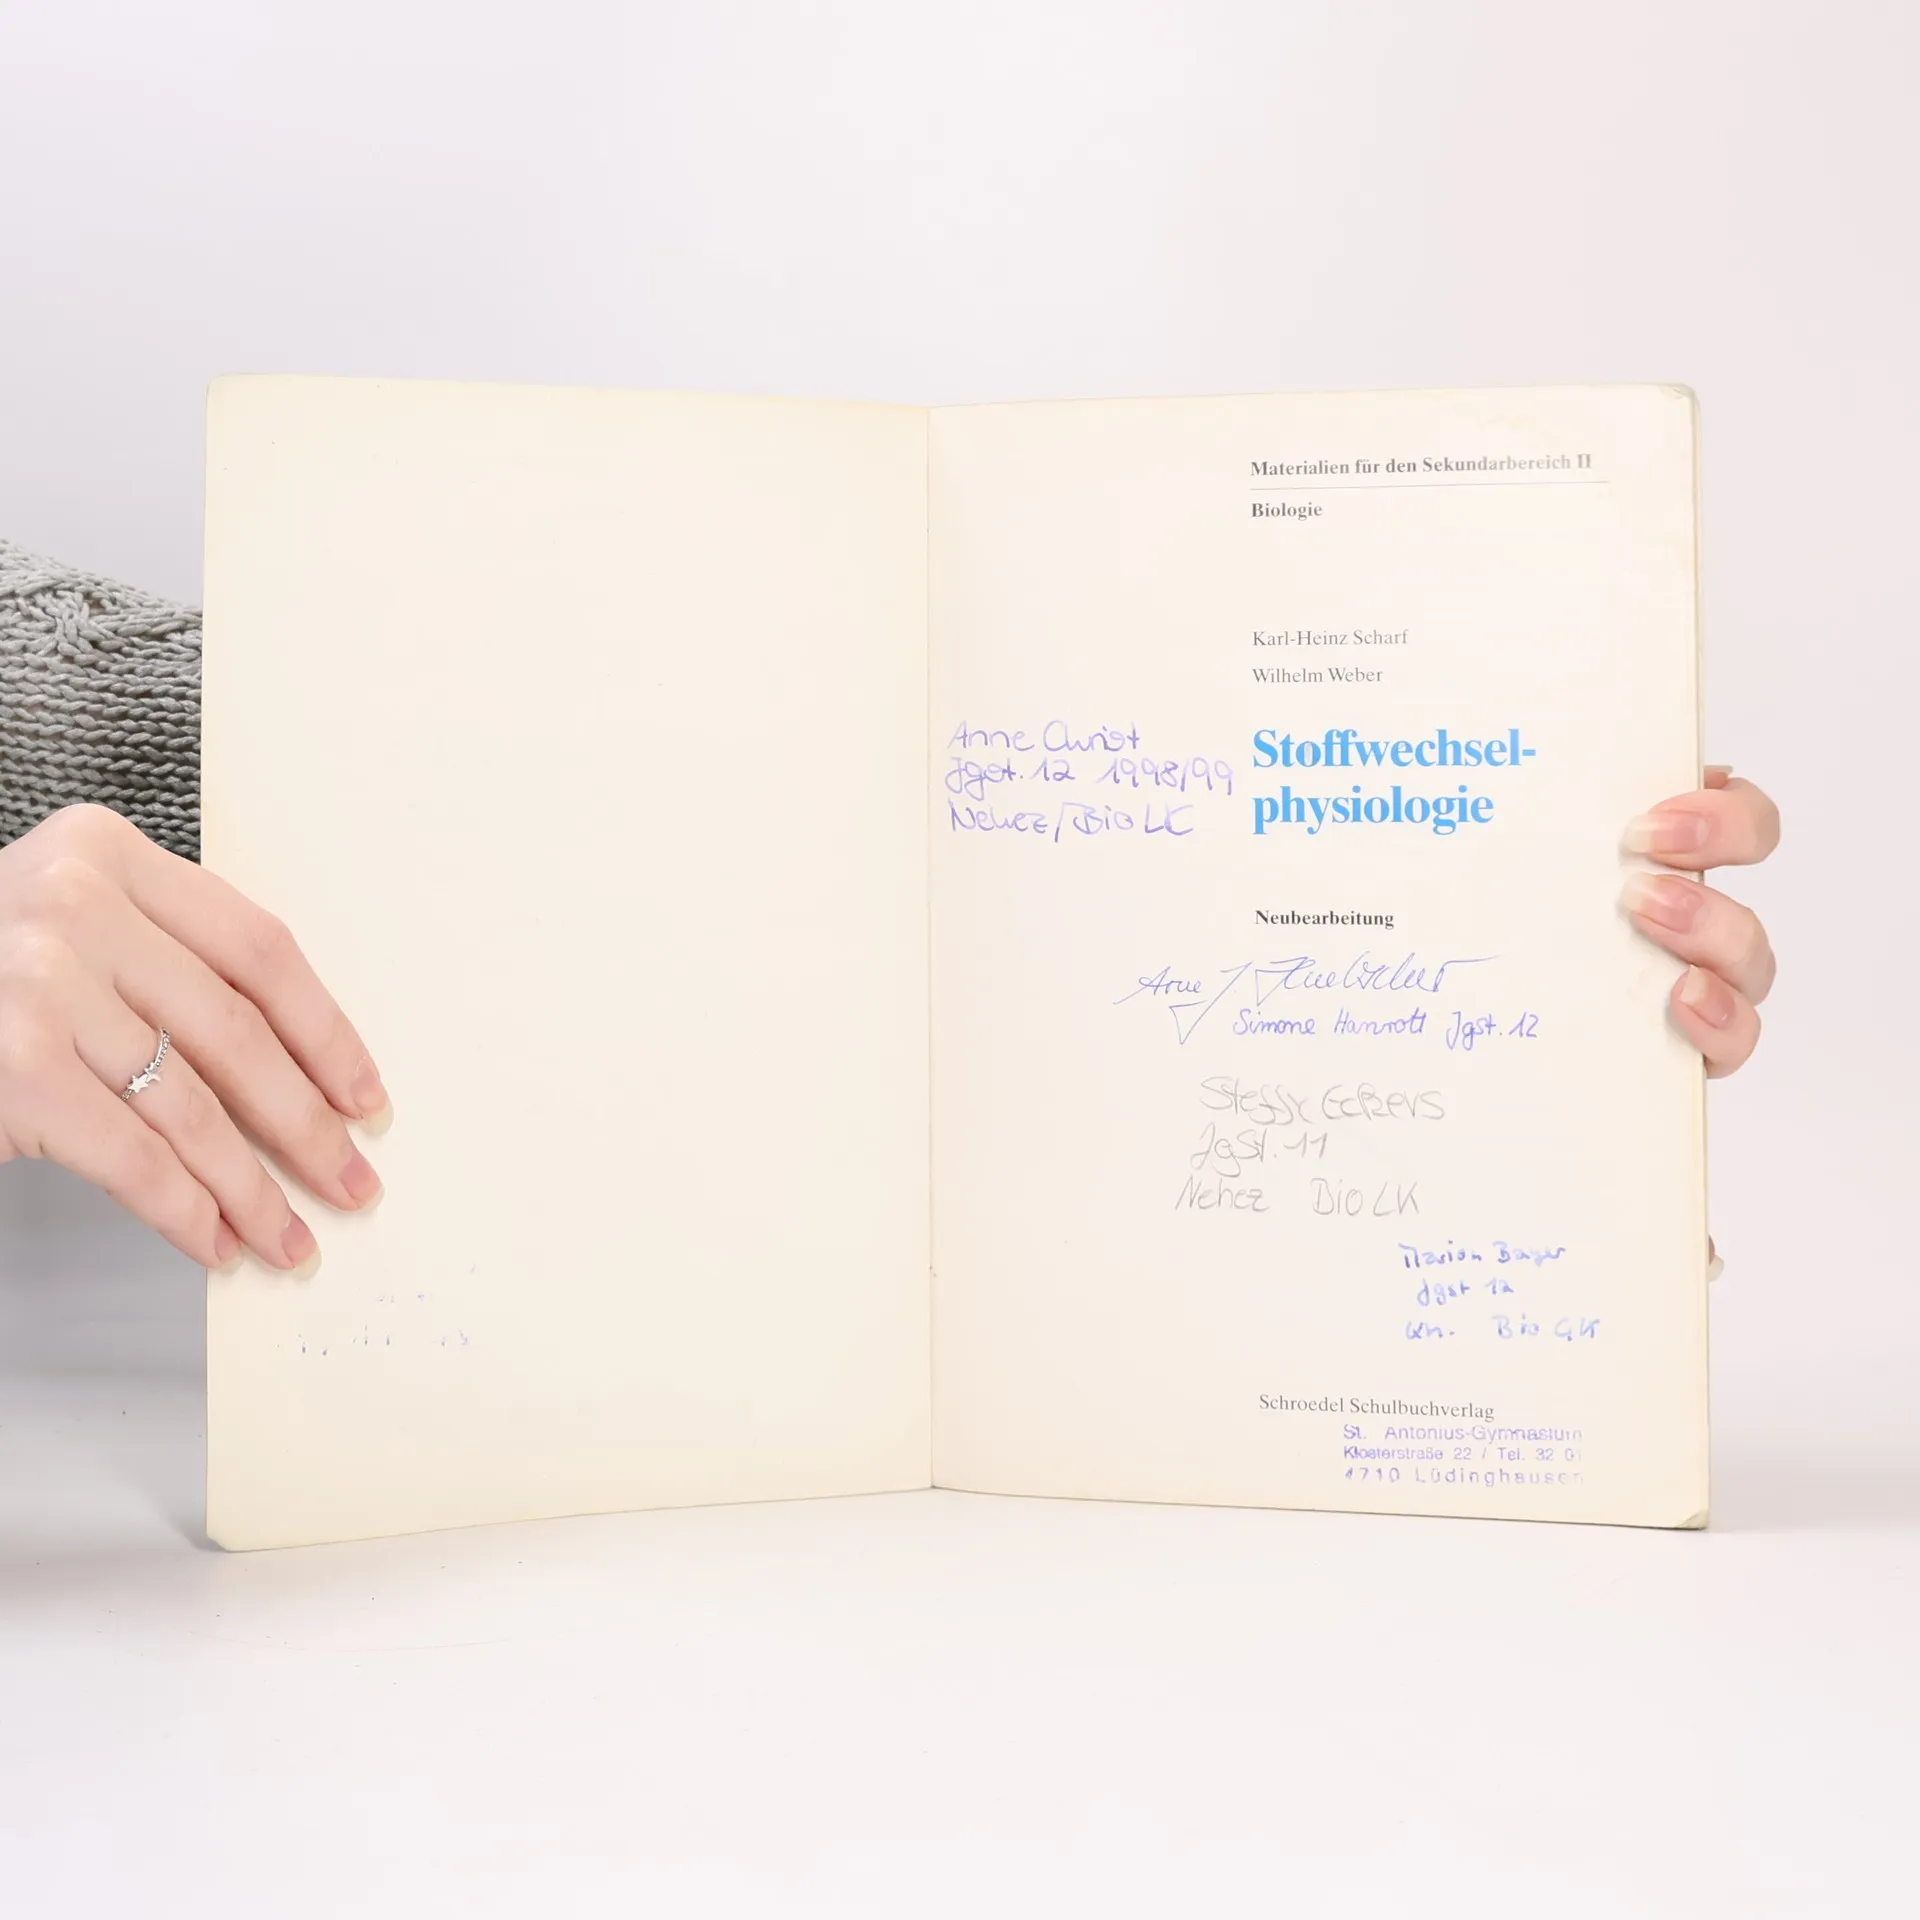 Materialien für den Sekundarbereich II
Biologie
Karl-Heinz Scharf
Wilhelm Weber
Anne Christ
Jgst. 12 1998/99
Nehez/Bio LK
Stoffwechsel-
physiologie
Neubearbeitung
Arne J.
Simone Hanrott Jgst. 12
Steffi Eckers
JgSt. 11
Nehez Bio LK
Marion Bayer
Jgst 12
Bio GK
Schroedel Schulbuchverlag
St. Antonius-Gymnasium
Klosterstraße 22 / Tel. 32 01
4710 Lüdinghausen